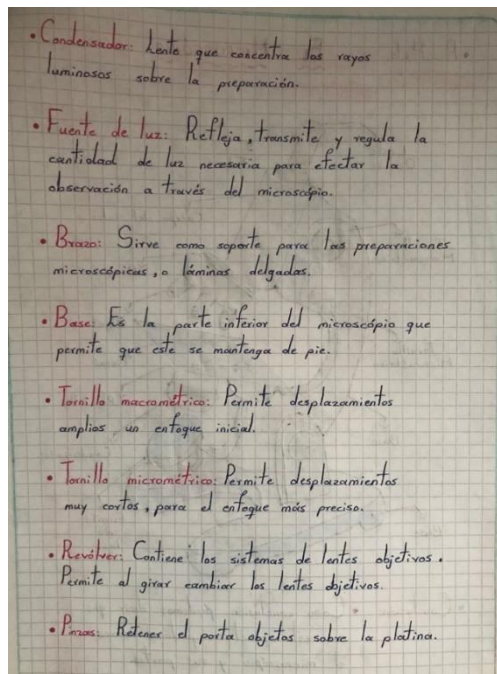 • Condensador: Lente que concentra los rayos
luminosos sobre la preparación.
• Fuente de luz: Refleja, transmite y regula la
cantidad de luz necesaria para efectar la
observación a través del microscópio.
• Brazo: Sirve como soporte para las preparaciones
microscópicas, o láminas delgadas.
• Base: Es la parte inferior del microscópio que
permite que este se mantenga de pie.
• Tornillo macrométrico: Permite desplazamientos
amplios un enfoque inicial.
• Tornillo micrométrico: Permite desplazamientos
muy cortos, para el enfoque más preciso.
• Revólver: Contiene los sistemas de lentes objetivos.
Permite al girar cambiar los lentes objetivos.
• Pinzas: Retener el porta objetos sobre la platina.